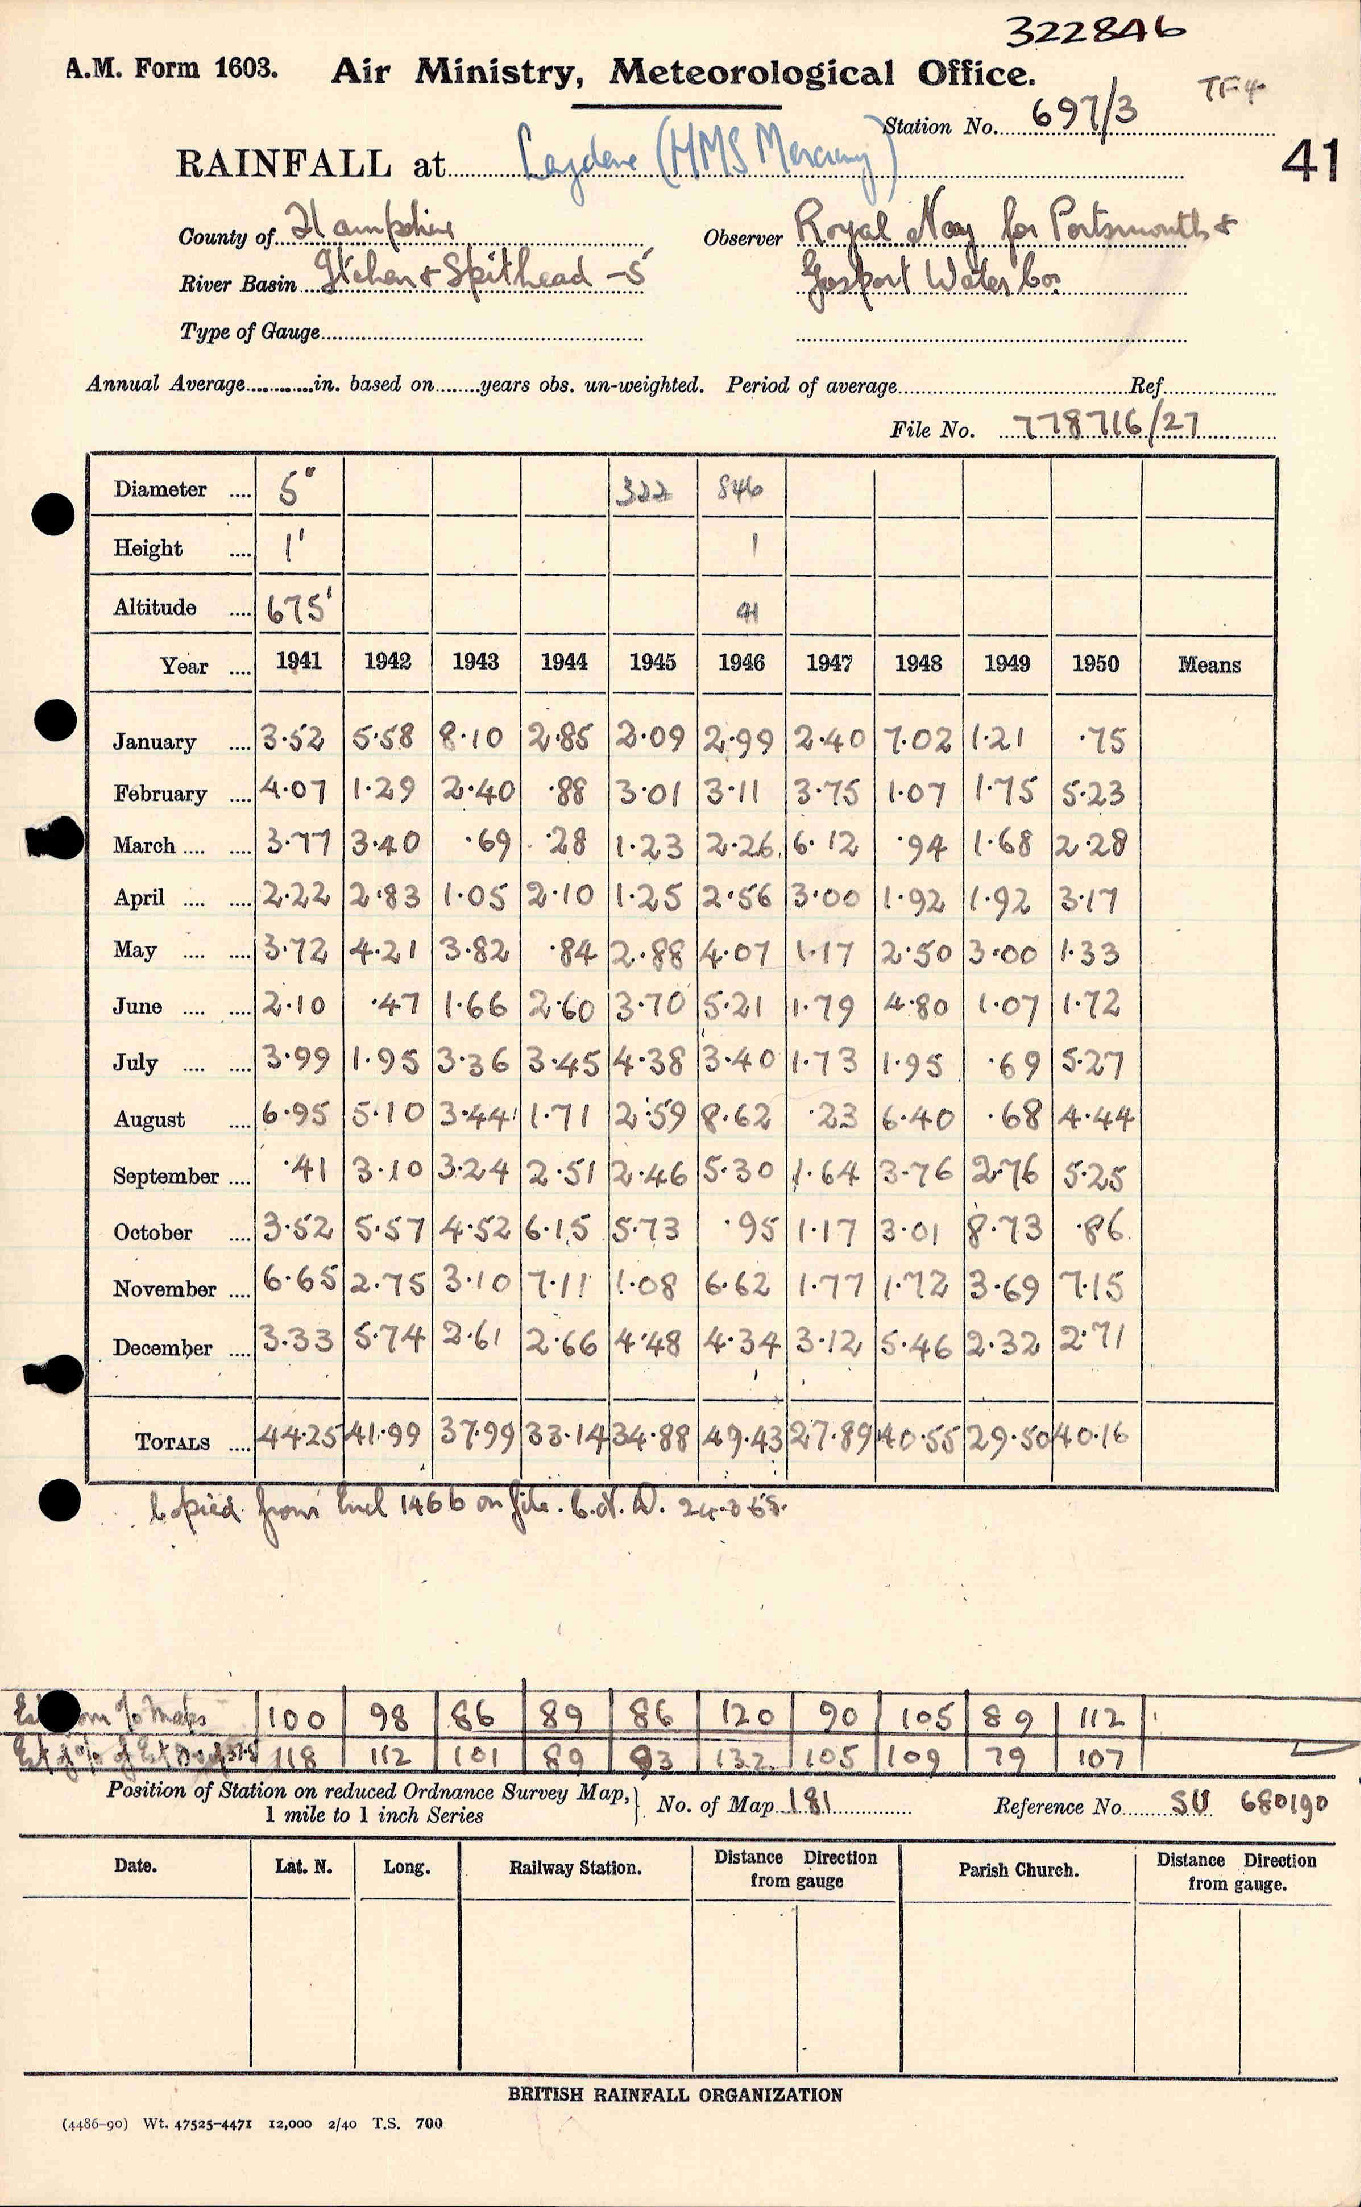 322846
A.M. Form 1603. Air Ministry, Meteorological Office.
TF4
Station No. 697/3
41
RAINFALL at Leydene (HMS Mercury)
County of Hampshire Observer Royal Navy for Portsmouth &
River Basin Itchen & Spithead -5 Gosport Water Co.
Type of Gauge
Annual Average in. based on years obs. un-weighted. Period of average Ref.
File No. 778716/27
Diameter .... 5" 322 846
Height .... 1' 1
Altitude .... 675' 41
Year .... 1941 1942 1943 1944 1945 1946 1947 1948 1949 1950 Means
January .... 3.52 5.58 8.10 2.85 2.09 2.99 2.40 7.02 1.21 .75
February .... 4.07 1.29 2.40 .88 3.01 3.11 3.75 1.07 1.75 5.23
March .... .... 3.77 3.40 .69 .28 1.23 2.26 6.12 .94 1.68 2.28
April .... .... 2.22 2.83 1.05 2.10 1.25 2.56 3.00 1.92 1.92 3.17
May .... .... 3.72 4.21 3.82 .84 2.88 4.07 1.17 2.50 3.00 1.33
June .... .... 2.10 .47 1.66 2.60 3.70 5.21 1.79 4.80 1.07 1.72
July .... .... 3.99 1.95 3.36 3.45 4.38 3.40 1.73 1.95 .69 5.27
August .... 6.95 5.10 3.44 1.71 2.59 8.62 .23 6.40 .68 4.44
September .... .41 3.10 3.24 2.51 2.46 5.30 1.64 3.76 2.76 5.25
October .... 3.52 5.57 4.52 6.15 5.73 .95 1.17 3.01 8.73 .86
November .... 6.65 2.75 3.10 7.11 1.08 6.62 1.77 1.72 3.69 7.15
December .... 3.33 5.74 2.61 2.66 4.48 4.34 3.12 5.46 2.32 2.71
TOTALS .... 44.25 41.99 37.99 33.14 34.88 49.43 27.89 40.55 29.50 40.16
Copied from Encl 146b on file.
from % Maps 100 98 86 89 86 120 90 105 89 112
118 112 101 89 93 132 105 109 79 107
Position of Station on reduced Ordnance Survey Map, No. of Map 181 Reference No. SU 680190
1 mile to 1 inch Series
Date. Lat. N. Long. Railway Station. Distance Direction from gauge Parish Church. Distance Direction from gauge.
BRITISH RAINFALL ORGANIZATION
(4486-90) Wt. 47525-4471 12,000 2/40 T.S. 700